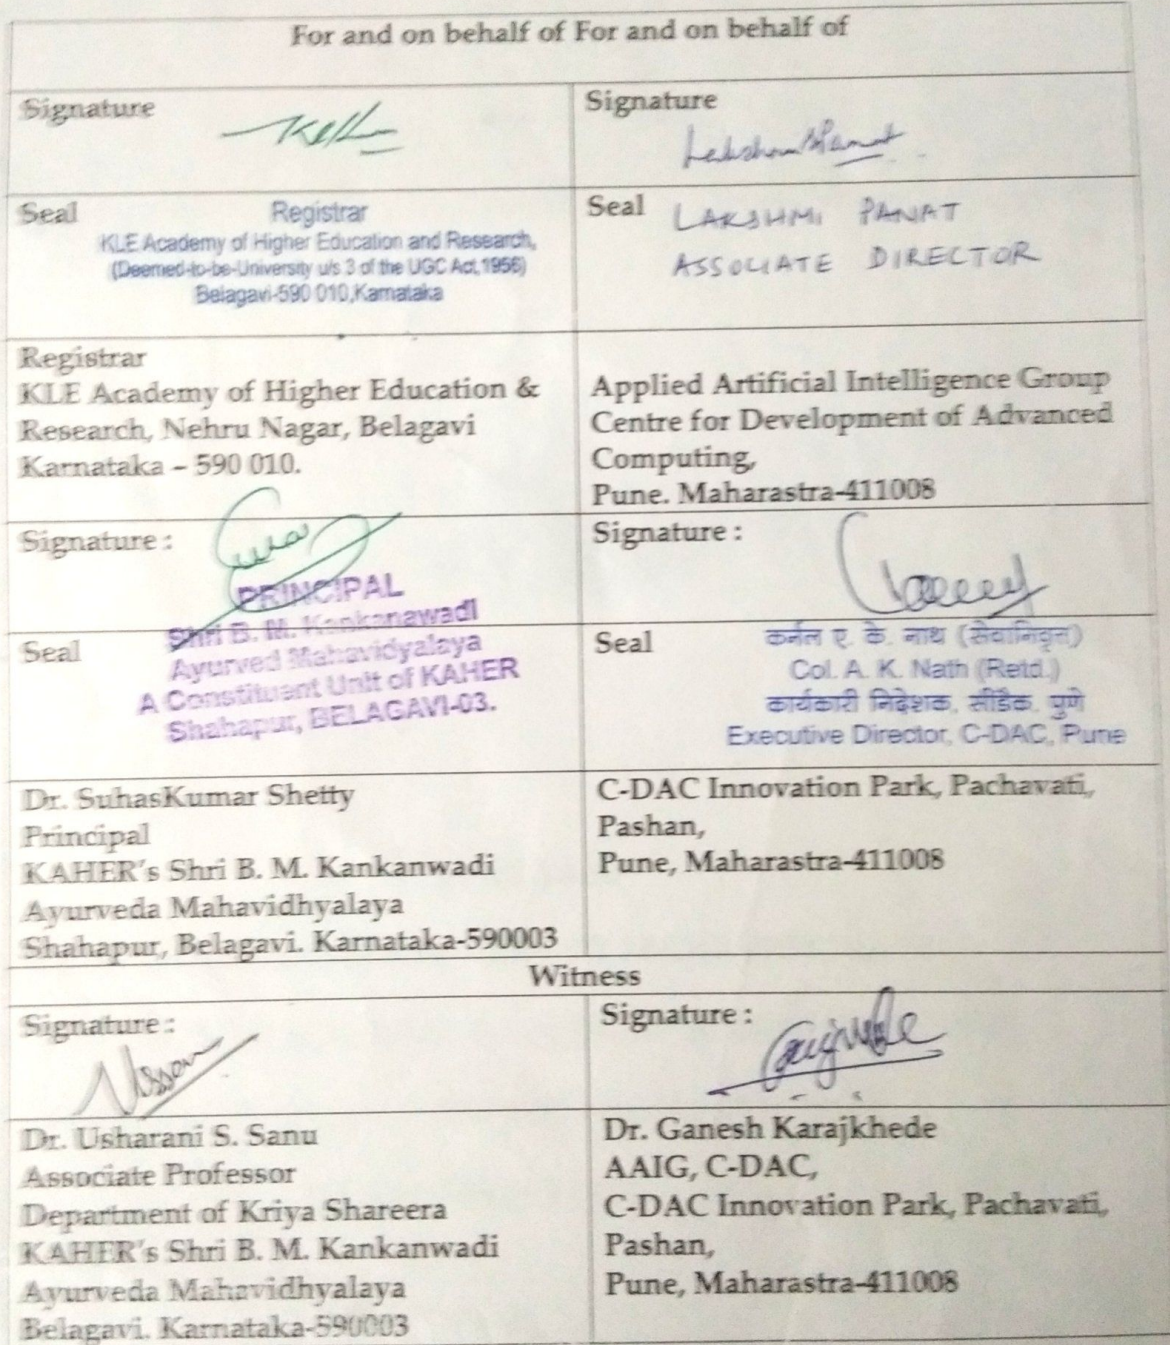 For and on behalf of For and on behalf of
Signature
Signature
Lakshmi Panat
Seal
Registrar
KLE Academy of Higher Education and Research,
(Deemed-to-be-University u/s 3 of the UGC Act,1956)
Belagavi-590 010,Karnataka
Seal
LAKSHMI PANAT
ASSOCIATE DIRECTOR
Registrar
KLE Academy of Higher Education &
Research, Nehru Nagar, Belagavi
Karnataka – 590 010.
Applied Artificial Intelligence Group
Centre for Development of Advanced
Computing,
Pune. Maharastra-411008
Signature :
Signature :
Seal
PRINCIPAL
Shri B. M. Kankanawadi
Ayurved Mahavidyalaya
A Constituent Unit of KAHER
Shahapur, BELAGAVI-03.
Seal
कर्नल ए. के. नाथ (सेवानिवृत्त)
Col. A. K. Nath (Retd.)
कार्यकारी निदेशक, सीडैक, पुणे
Executive Director, C-DAC, Pune
Dr. SuhasKumar Shetty
Principal
KAHER's Shri B. M. Kankanwadi
Ayurveda Mahavidhyalaya
Shahapur, Belagavi. Karnataka-590003
C-DAC Innovation Park, Pachavati,
Pashan,
Pune, Maharastra-411008
Witness
Signature :
Signature :
Dr. Usharani S. Sanu
Associate Professor
Department of Kriya Shareera
KAHER's Shri B. M. Kankanwadi
Ayurveda Mahavidhyalaya
Belagavi. Karnataka-590003
Dr. Ganesh Karajkhede
AAIG, C-DAC,
C-DAC Innovation Park, Pachavati,
Pashan,
Pune, Maharastra-411008